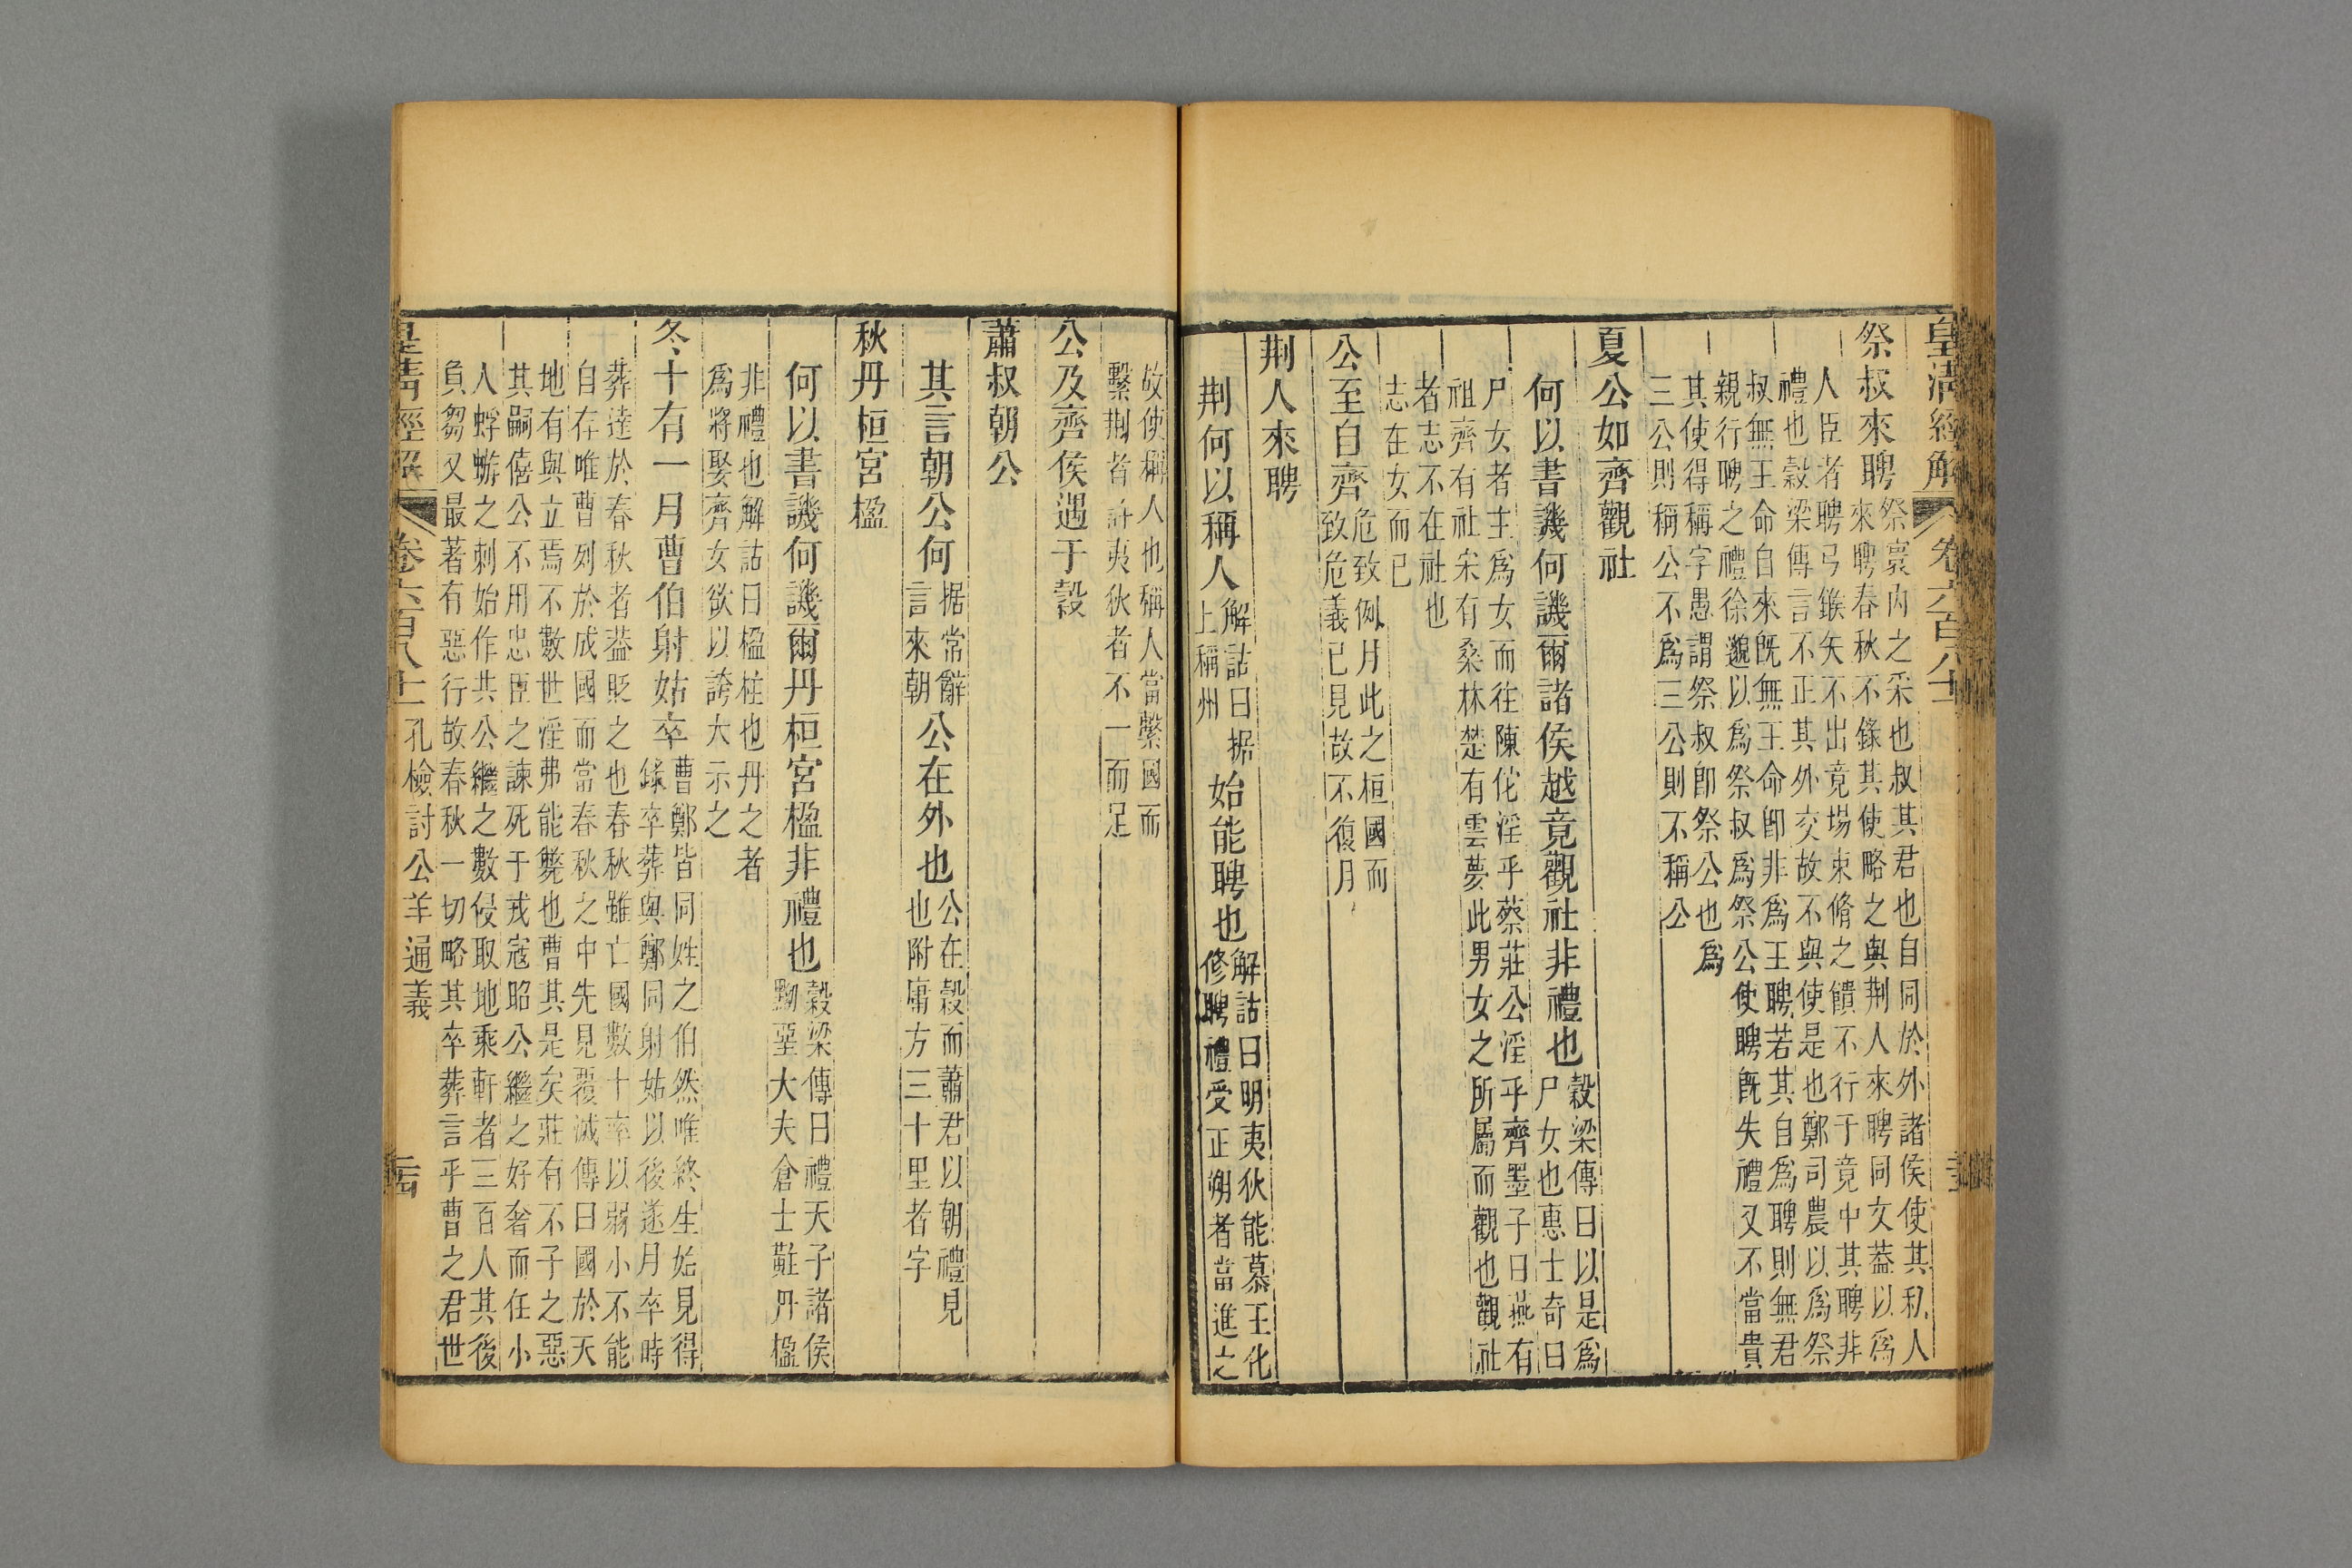 皇清經解 卷六百八十
祭叔來聘
祭寰內之采也叔其君也自同於外諸侯使其私人
來聘春秋不錄其使略之與荆人來聘同文葢以爲
人臣者聘弓鍭矢不出竟場束脩之饋不行于竟中其聘非
禮也穀梁傳言不正其外交故不與使是也鄭司農以爲祭
叔無王命自來旣無王命卽非爲王聘若其自爲聘則無君
親行聘之禮徐邈以爲祭叔爲祭公使聘旣失禮又不當貴
其使得稱字愚謂祭叔卽祭公也爲
三公則稱公不爲三公則不稱公
夏公如齊觀社
何以書譏何譏爾諸侯越竟觀社非禮也
穀梁傳曰以是爲
尸女也惠士奇曰
尸女者主爲女而往陳佗淫乎蔡莊公淫乎齊墨子曰燕有
祖齊有社宋有桑林楚有雲夢此男女之所屬而觀也觀社
者志不在社也
志在女而已
公至自齊
危致例月此之桓國而
致危義已見故不復月
荆人來聘
荆何以稱人
解詁曰据
上稱州
始能聘也
解詁曰明夷狄能慕王化
修聘禮受正朔者當進之
故使稱人也稱人當繫國而
繫荆者許夷狄者不一而足
公及齊侯遇于穀
蕭叔朝公
其言朝公何
据常辭
言來朝
公在外也
公在穀而蕭君以朝禮見
也附庸方三十里者字
秋丹桓宮楹
何以書譏何譏爾丹桓宮楹非禮也
穀梁傳曰禮天子諸侯
黝堊大夫倉士黈丹楹
非禮也解詁曰楹柱也丹之者
爲將娶齊女欲以誇大示之
冬十有一月曹伯射姑卒
曹鄭皆同姓之伯然唯終生始見得
錄卒葬與鄭同射姑以後遂月卒時
葬達於春秋者葢貶之也春秋雖亡國數十率以弱小不能
自存唯曹列於成國而當春秋之中先見覆滅傳曰國於天
地有與立焉不數世淫弗能斃也曹其是矣莊有不子之惡
其嗣僖公不用忠臣之諫死于戎寇昭公繼之好奢而任小
人蜉蝣之刺始作共公繼之數侵取地乘軒者三百人其後
負芻又最著有惡行故春秋一切略其卒葬言乎曹之君世
皇清經解 卷六百八十 孔檢討公羊通義